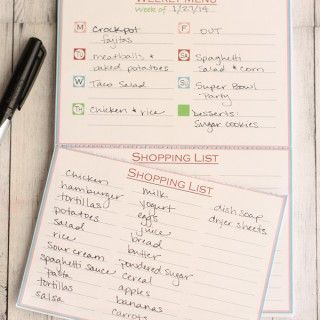 WEEKLY MENU
Week of 1/27/14
M Crockpot
fajitas
F OUT
TU meatballs &
baked potatoes
SA Spaghetti
Salad & corn
W Taco Salad
SU Super Bowl
Party
TH Chicken & rice
desserts:
Sugar cookies
SHOPPING LIST
SHOPPING LIST
Chicken
hamburger
tortillas
potatoes
salad
rice
sour cream
spaghetti sauce
pasta
tortillas
salsa
milk
yogurt
eggs
juice
bread
butter
powdered sugar
Cereal
apples
bananas
carrots
dish soap
dryer sheets